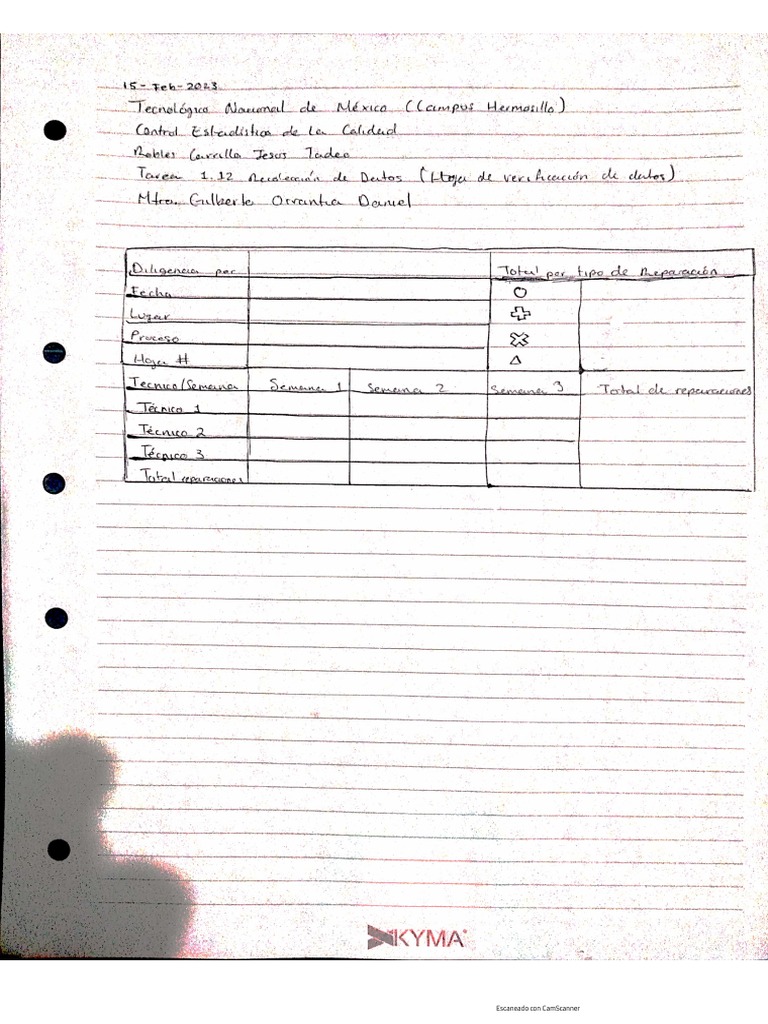 15-Feb-2023
Tecnológico Nacional de México (Campus Hermosillo)
Control Estadística de La Calidad
Robles Carrillo Jesus Tadeo
Tarea 1.12 Recolección de Datos (Hoja de verificación de datos)
Mtro. Gilberto Orrantia Daniel
Diligencia por Total por tipo de Reparación
Fecha
Lugar
Proceso
Hoja #
Tecnico/Semana Semana 1 Semana 2 Semana 3 Total de reparaciones
Técnico 1
Técnico 2
Técnico 3
Total reparaciones
KYMA
Escaneado con CamScanner